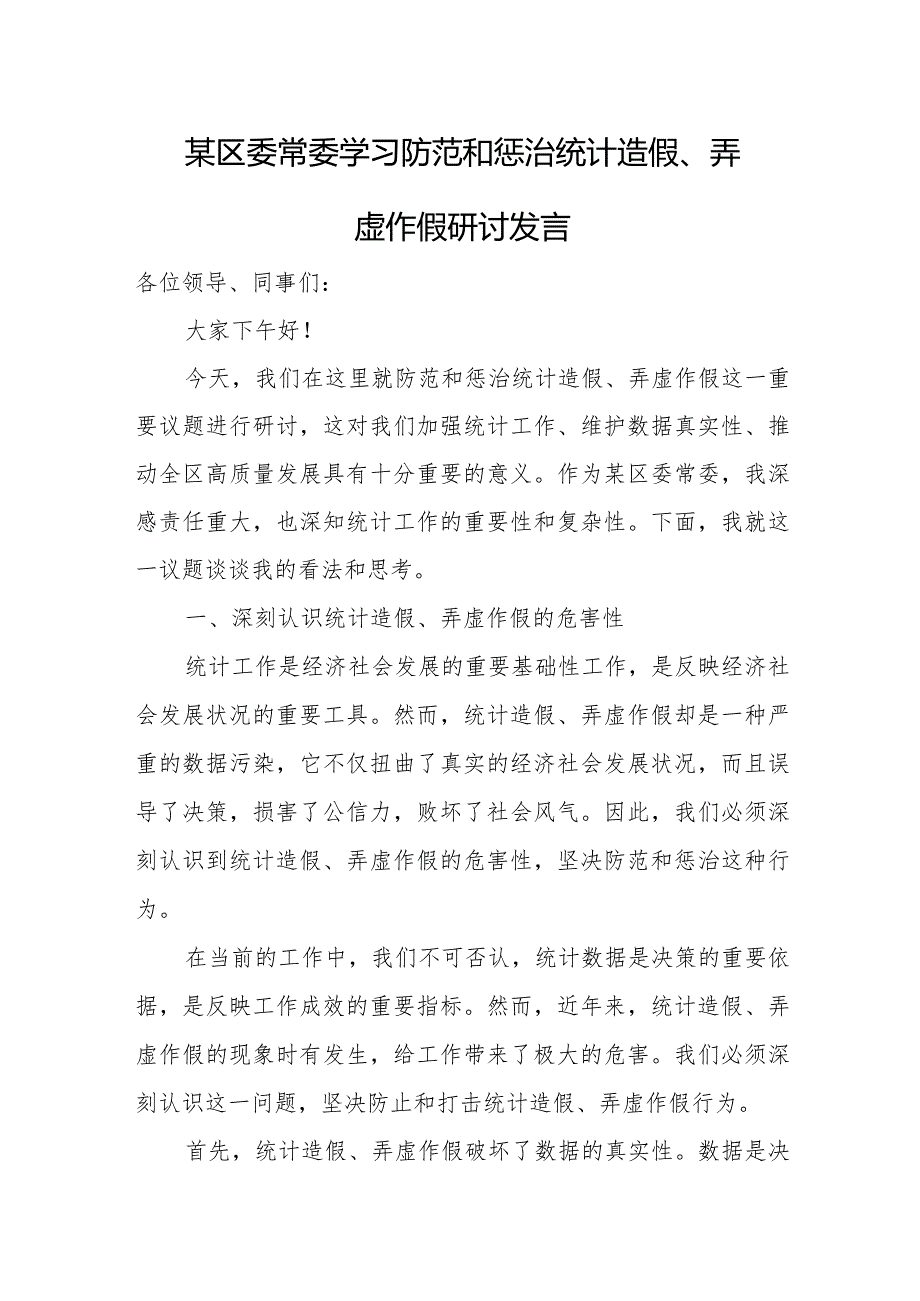 某区委常委学习防范和惩治统计造假、弄
虚作假研讨发言
各位领导、同事们：
大家下午好！
今天，我们在这里就防范和惩治统计造假、弄虚作假这一重
要议题进行研讨，这对我们加强统计工作、维护数据真实性、推
动全区高质量发展具有十分重要的意义。作为某区委常委，我深
感责任重大，也深知统计工作的重要性和复杂性。下面，我就这
一议题谈谈我的看法和思考。
一、深刻认识统计造假、弄虚作假的危害性
统计工作是经济社会发展的重要基础性工作，是反映经济社
会发展状况的重要工具。然而，统计造假、弄虚作假却是一种严
重的数据污染，它不仅扭曲了真实的经济社会发展状况，而且误
导了决策，损害了公信力，败坏了社会风气。因此，我们必须深
刻认识到统计造假、弄虚作假的危害性，坚决防范和惩治这种行
为。
在当前的工作中，我们不可否认，统计数据是决策的重要依
据，是反映工作成效的重要指标。然而，近年来，统计造假、弄
虚作假的现象时有发生，给工作带来了极大的危害。我们必须深
刻认识这一问题，坚决防止和打击统计造假、弄虚作假行为。
首先，统计造假、弄虚作假破坏了数据的真实性。数据是决